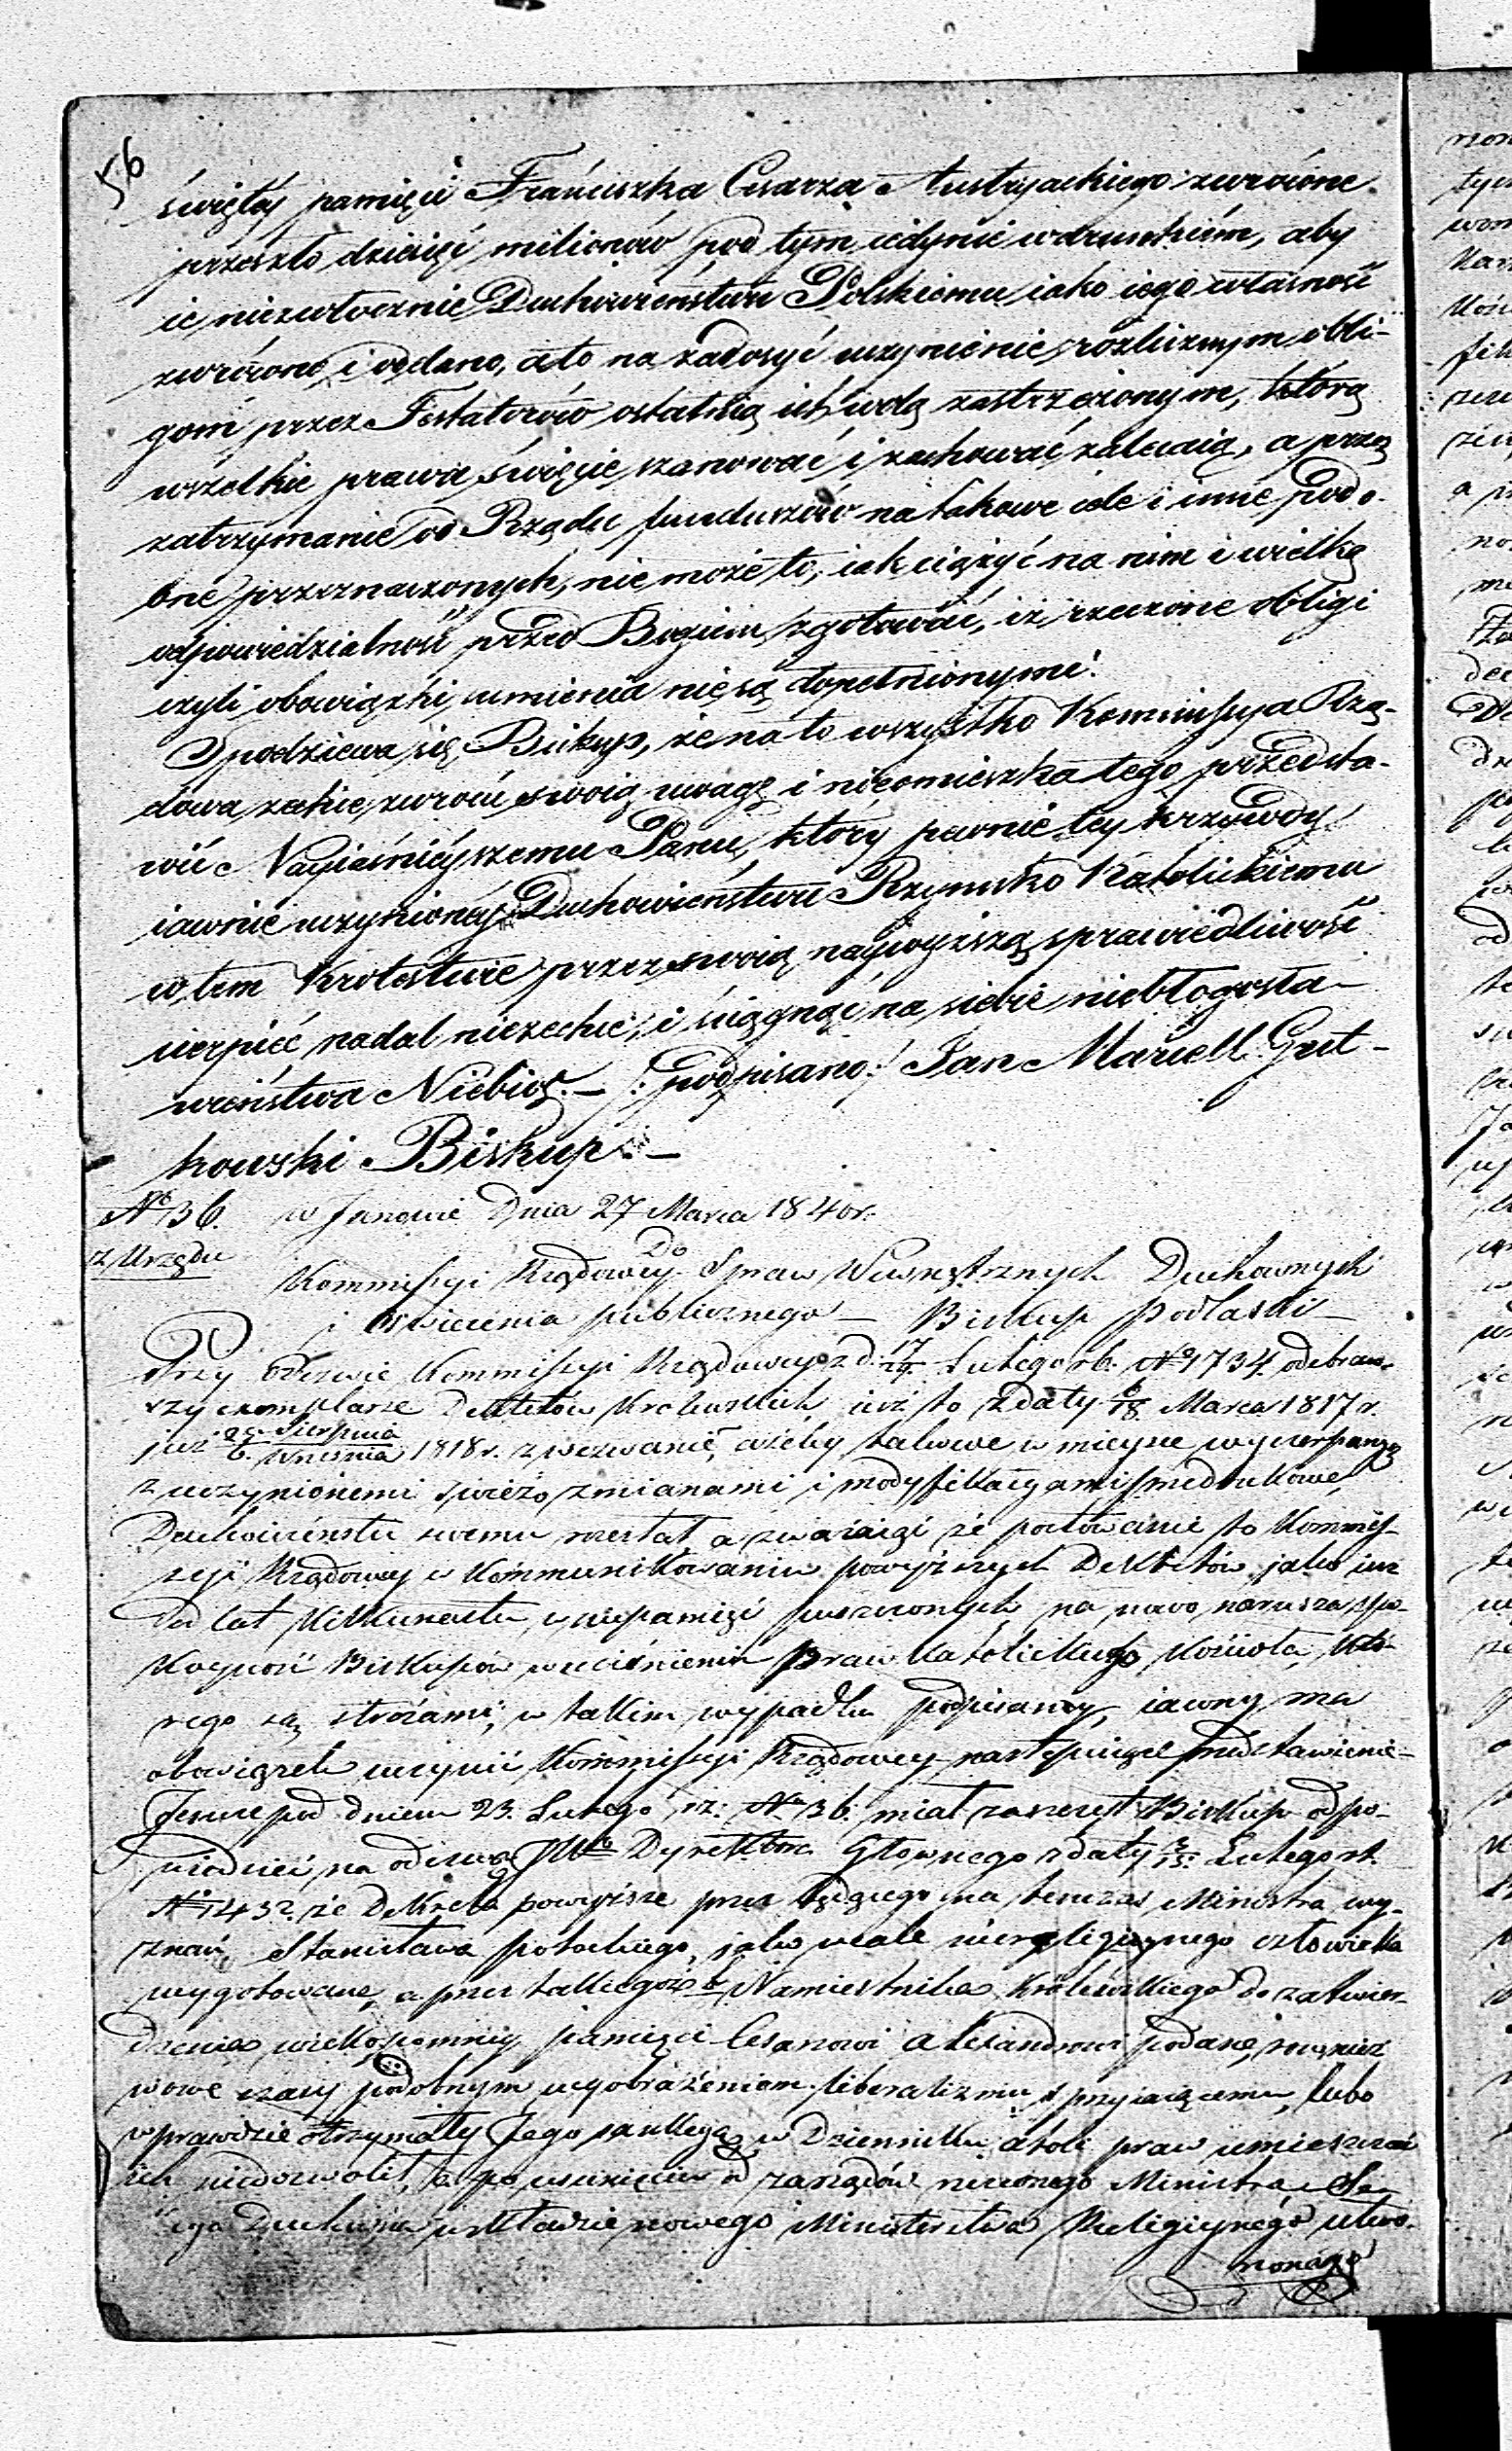 56
świętéy pamięci Franciszka Cesarza Austryackiego zwrócone
przeszło dziesięć milionów pod tym iedynie warunkiem, aby
ie niezwłocznie Duchowieństwu Polskiemu iako iego własność
zwrócono i oddano, a to na zadosyć uczynienie rozlicznym obli-
gom przez Testatorów ostatnią ich wolą zastrzeżonym, którą
wszelkie prawa święcie szanować i zachować zalecaią, a przez
zatrzymanie od Rządu funduszów na takowe cele i inne podo-
bne przeznaczonych, nie może to, iak ciążyć na nim i wielką
odpowiedzialność przed Bogiem zgotować, iż rzeczone obligi
czyli obowiązki sumienia nie są dopełnionymi.
Spodziewa się Biskup, że na to wszystko Kommissya Rzą-
dowa zechce zwrócić swoią uwagę i nieomieszka tego przedsta-
wić Nayiaśnieyszemu Panu, który pewnie tey krzywdy
iawnie uczynionéy Duchowieństwu Rzymsko Katolickiemu
w tem Królestwie przez swoią naywyższą sprawiedliwość
cierpieć nadal niezechce, i ściągnąć na siebie niebłogosła-
wieństwa Niebios. — /: podpisano :/ Jan Marcell Gut-
kowski Biskup. —
No 36. w Janowie Dnia 27 Marca 1840 r.
z Urzędu
Do
Kommissyi Rządowey Spraw Wewnętrznych Duchownych
i Oświecenia publicznego — Biskup Podlaski —
Przy odezwie Kommissyi Rządowey z d. 17/29 Lutego r.b. No 1734. odebraw-
szy exemplarze Dekretów Królewskich iuż to z daty 6/18 Marca 1817 r.
iuż 25. Sierpnia/6. Września 1818 r. z wezwaniem ażeby takowe w mieysce wyczerpanych
z uczynionemi świeżo zmianami i modyfikacyami przedrukowane
Duchowieństwu swemu rozesłał, a zważaiąc że ponowienie to Kommis-
syi Rządowey w kommunikowaniu powyższych Dekretów, jako iuż
od lat kilkunastu w niepamięć puszczonych na nowo narusza spo-
koyność Biskupów w uciśnieniu praw Katolickiego Kościoła, któ-
rego są stróżami, w takim wypadku podpisany iawny ma
obowiązek uczynić Kommissyi Rządowey następuiące przedstawienie —
Jeszcze pod dniem 23. Lutego r.b. No 36. miał zaszczyt Biskup odpo-
wiedzieć na odezwę JW. Dyrektora Głównego z daty 3/15. Lutego r.b.
No 1432. że Dekreta powyższe przez będącego na tenczas Ministra wy-
znań Stanisława Potockiego, jako wcale niereligiynego człowieka
wygotowane, a przez takiegoż b. Namiestnika Królewskiego do zatwier-
dzenia wiekopomney pamięci Cesarzowi Alexandrowi podane, również
w owe czasy podobnym wyobrażeniom liberalizmu sprzyiaiącemu, lubo
wprawdzie otrzymały Jego sankcyą, w Dzienniku atoli praw umieszczać
ich niedozwolił, a po usunięciu od zarządów rzeczonego Ministra, Sek-
cya Duchowna w składzie nowego Ministerstwa Religiynego utwo-
rzonego